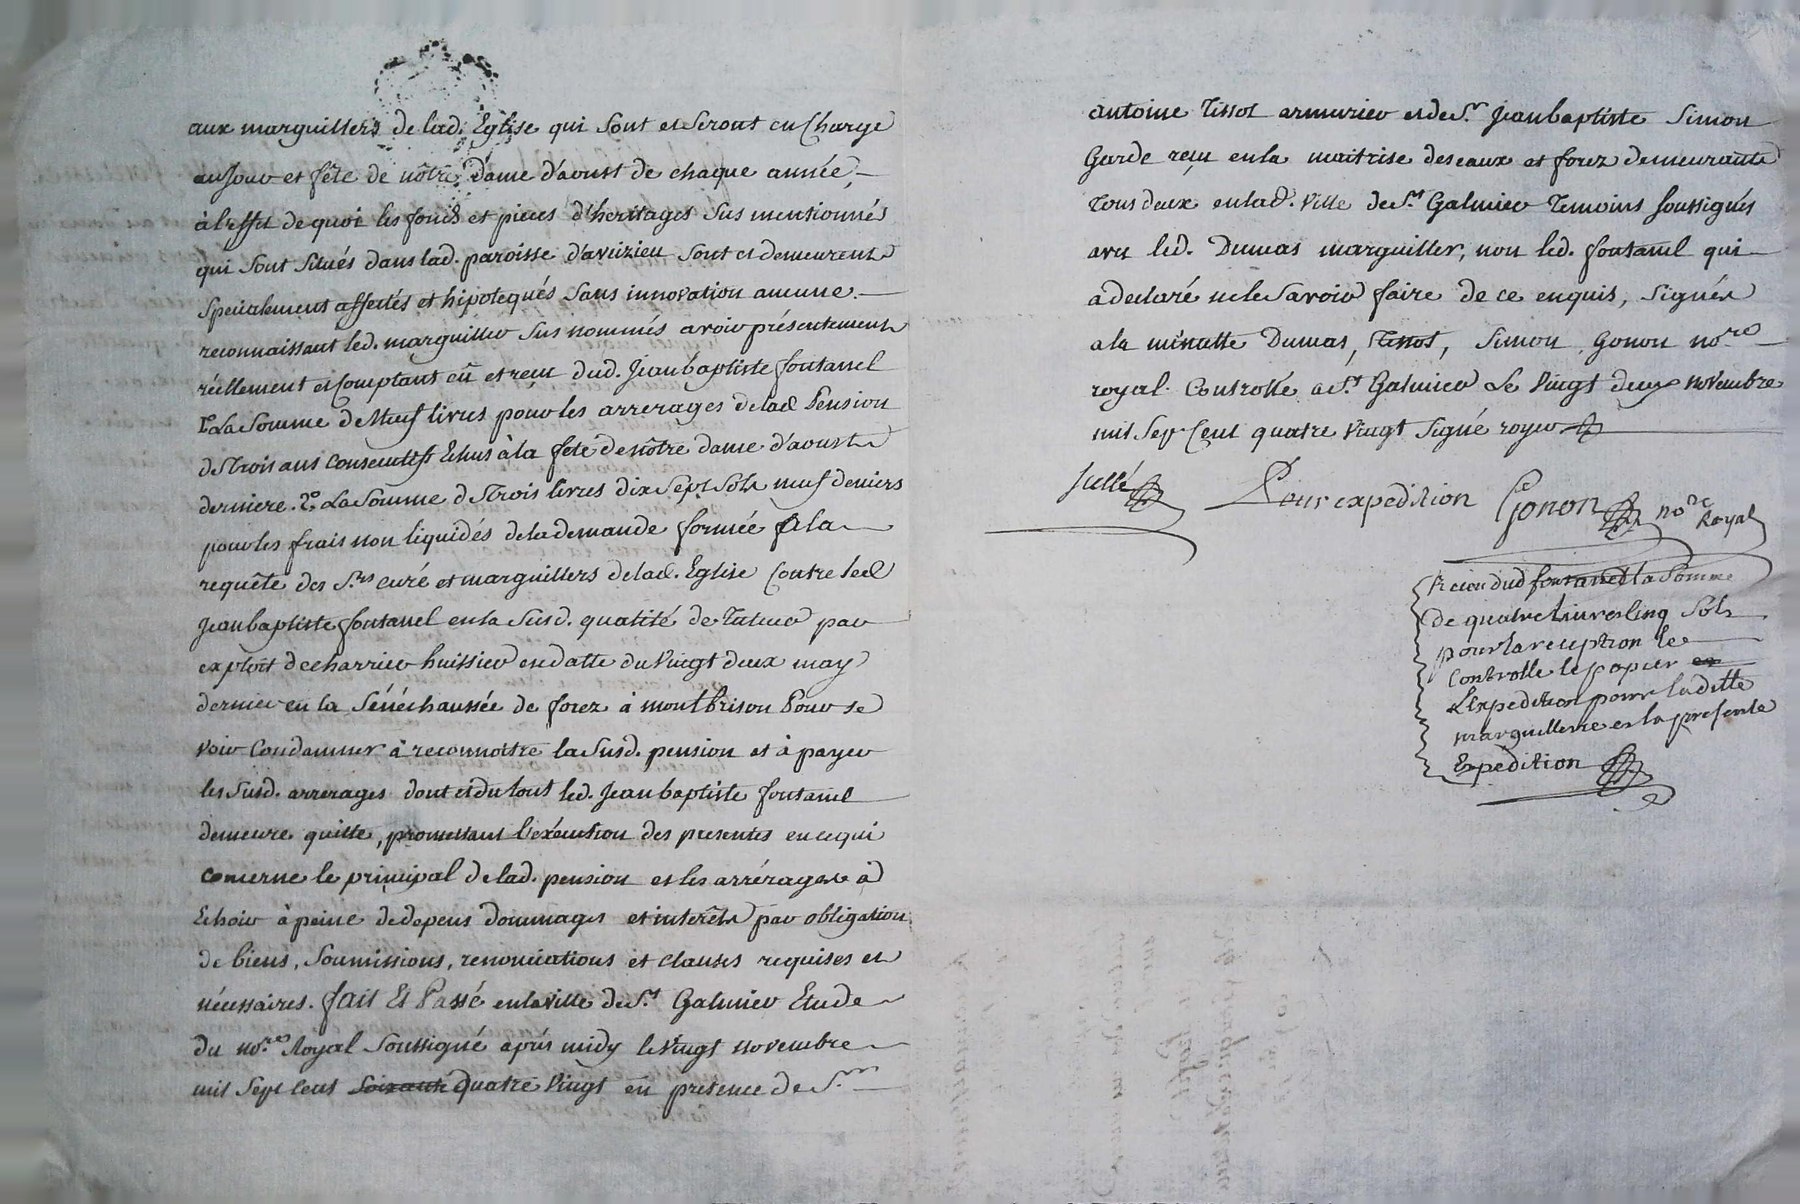 aux marguilliers de lad. Eglise qui sont et seront en charge
au jour et fête de nôtre dame d'aoust de chaque année,
à l'effet de quoi les fonds et pieces d'heritages sus mentionnés
qui sont situés dans lad. paroisse d'aveizieu sont et demeurent
specialement affectés et hipotequés sans innovation aucune.
reconnaissant led. marguillier sus nommés avoir présentement
réellement et comptant eû et reçu dud. Jean baptiste fontanel
1º La somme de Neuf livres pour les arrerages de lad Pension
de trois ans consecutifs Echus à la fête de nôtre dame d'aoust
derniere. 2º La somme de trois livres dix sept sols neuf deniers
pour les frais non liquidés de la demande formée a la
requête des Srs curé et marguilliers de lad. Eglise Contre led
Jean baptiste fontanel en la susd. qualité de Tuteur par
exploit de charrier huissier en datte du vingt deux may
dernier en la Sénéchaussée de forez à montbrison Pour se
voir Condamner à reconnoître la susd. pension et à payer
les susd. arrerages dont et du tout led. Jean baptiste fontanel
demeure quitte, promettant l'exécution des presentes en ce qui
concerne le principal de lad. pension et les arrérages à
Echoir à peine de depens dommages et interêts par obligation
de biens, soumissions, renonciations et clauses requises et
nécessaires. fait Et Passé en la ville de St Galmier Etude
du nore Royal soussigné après midy le vingt novembre
mil sept cent soixante quatre vingt en presence de Sr
antoine Tissot armurier et de Sr Jean baptiste Simon
Garde reçu en la maitrise des eaux et forez demeurants
Tous deux en lad. ville de St Galmier Temoins soussignés
avec led. Dumas marguillier, non led. fontanel qui
a declaré ne le savoir faire de ce enquis, signés
a la minutte Dumas, Tissot, Simon, Gonon nore
royal. Controllé a St Galmier Le vingt deux novembre
mil sept cent quatre vingt signé royer
Scellé Pour expedition Gonon nore Royal
dud fontanel la somme
de quatre Livres cinq sols
pour la reception le
controlle le papier et
L'Expedition pour ladite
marguillerie et la presente
Expedition